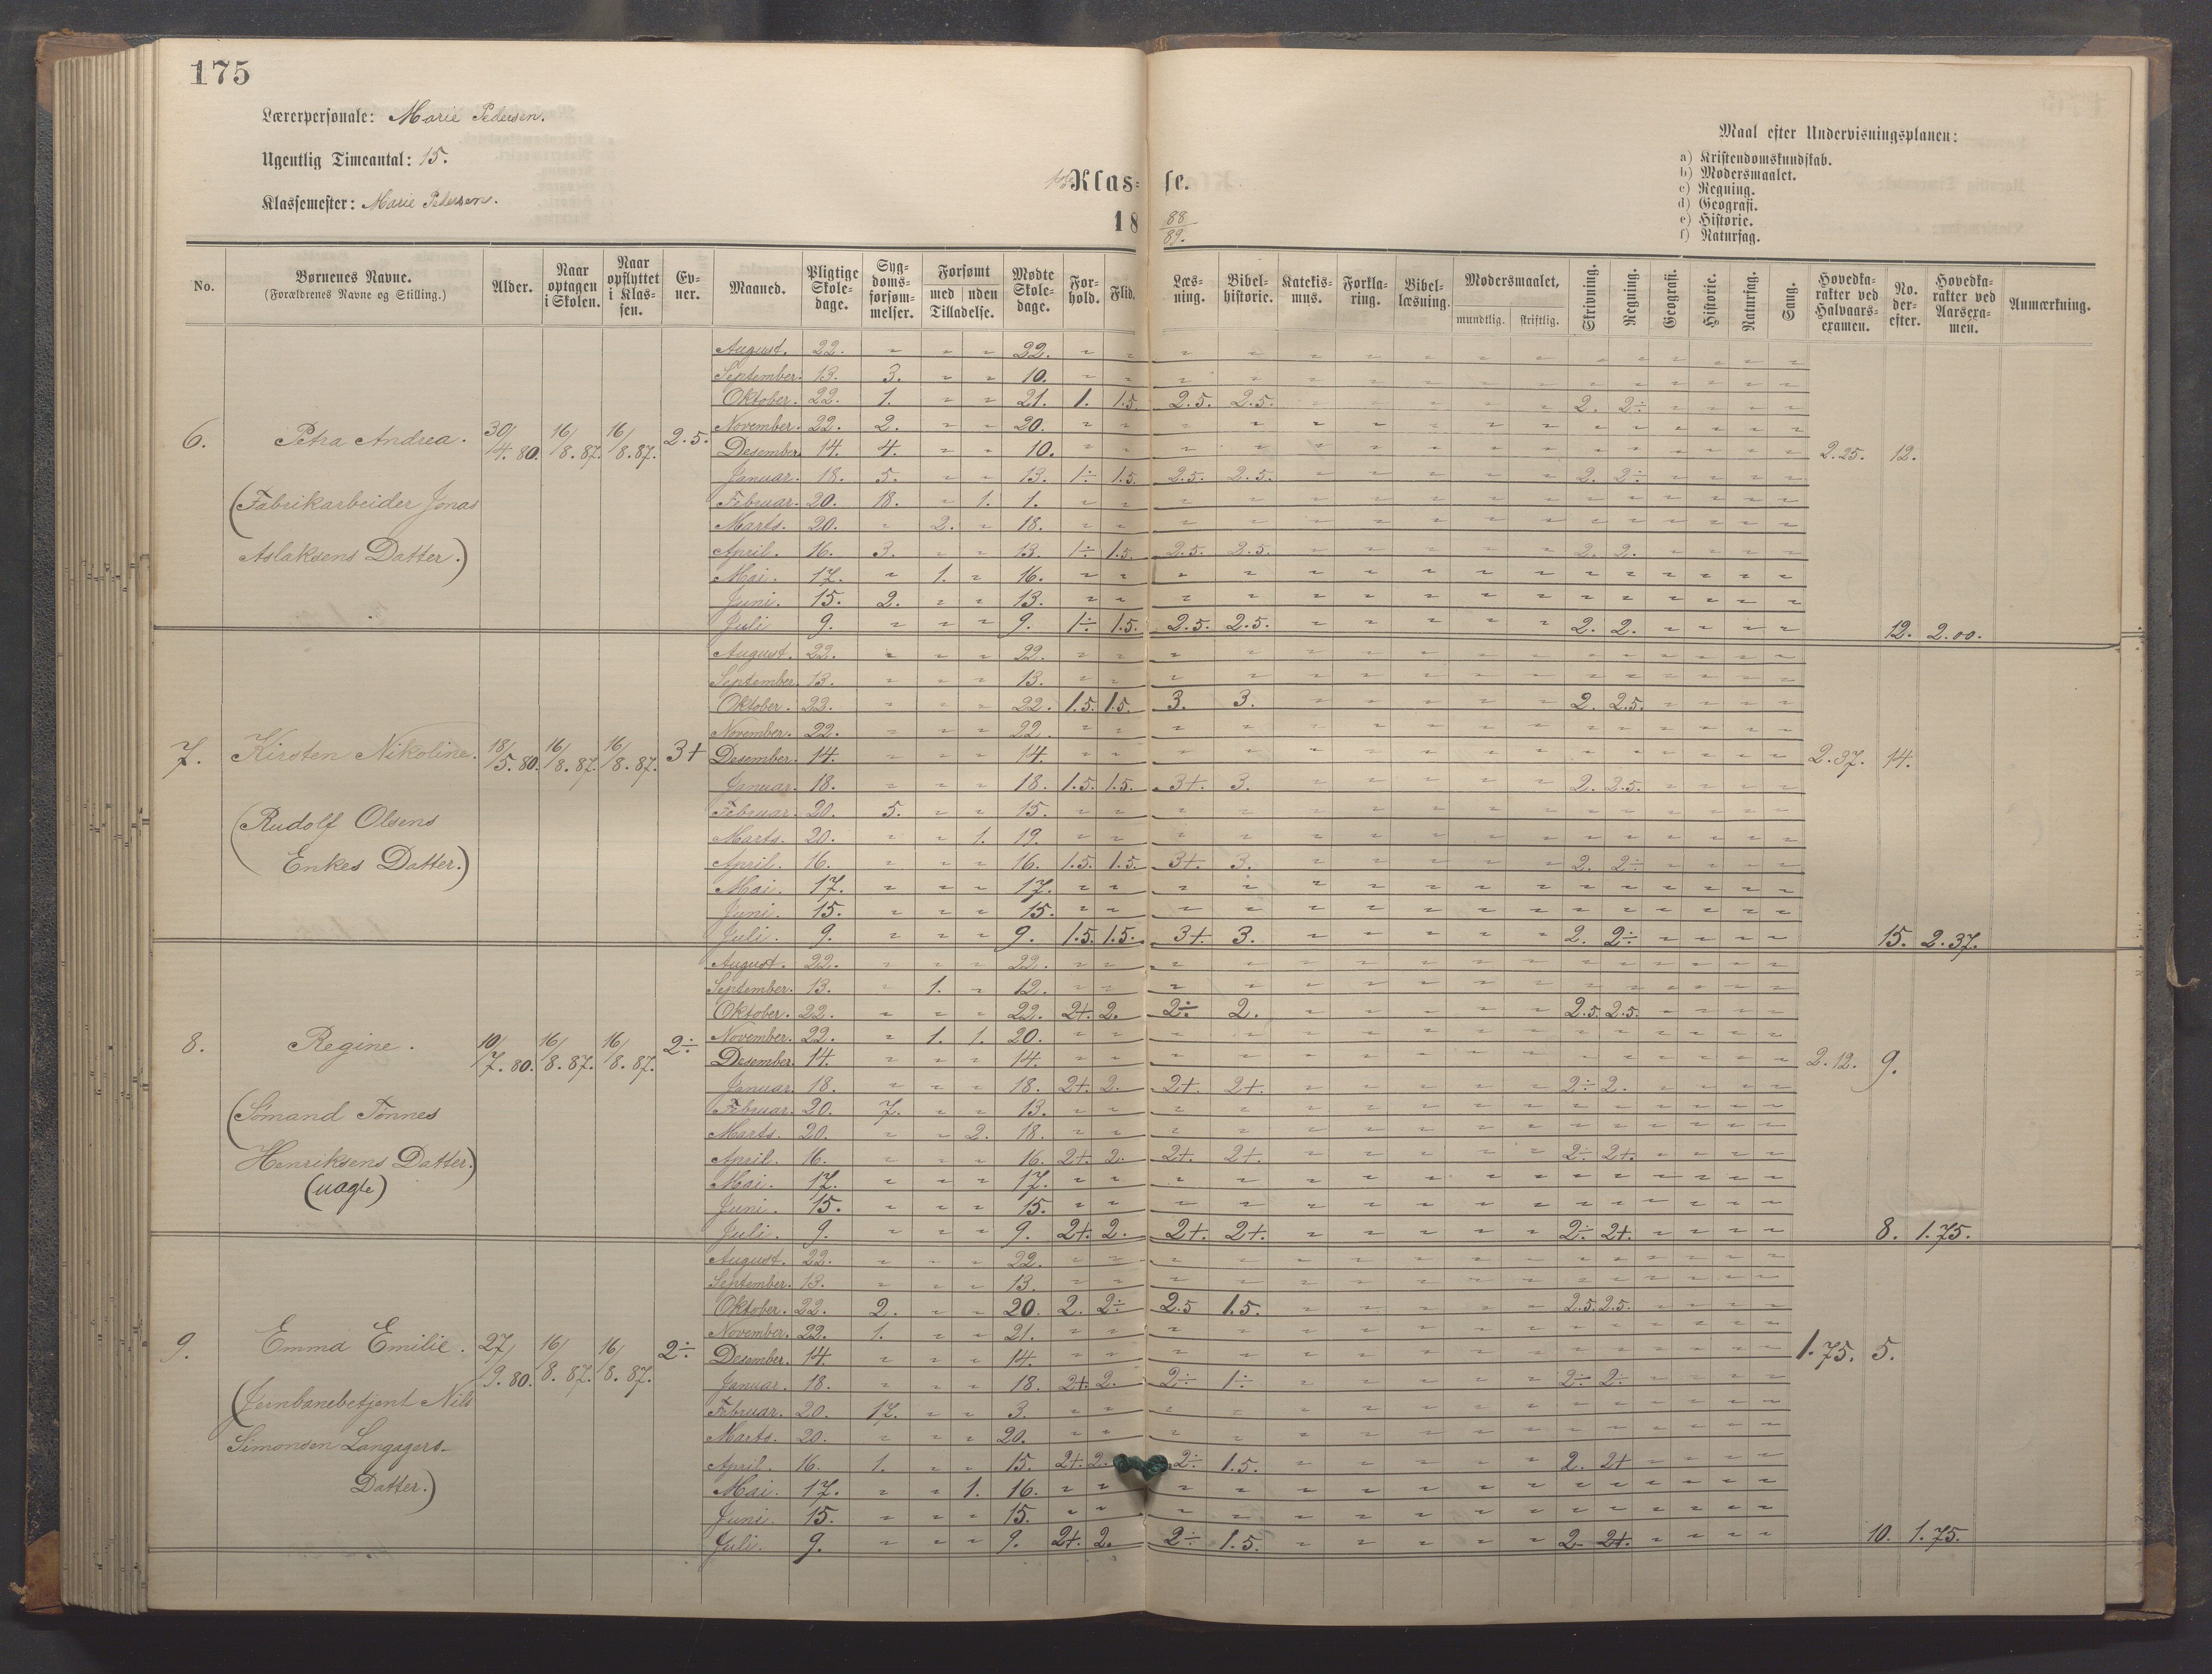 175
Lærerpersonale: Marie Pedersen.
Ugentlig Timeantal: 15.
Klassemester: Marie Pedersen.
Klasse.
18 88/89.
Maal efter Undervisningsplanen:
a) Kristendomskundskab.
b) Modersmaalet.
c) Regning.
d) Geografi.
e) Historie.
f) Naturfag.
No. | Børnenes Navne. (Forældrenes Navne og Stilling.) | Alder. | Naar optagen i Skolen. | Naar opflyttet i Klassen. | Evner. | Maaned. | Pligtige Skoledage. | Sygdomsforsømmelser. | Forsømt med uden Tilladelse. | Mødte Skoledage. | Forhold. | Flid. | Læsning. | Bibelhistorie. | Katekismus. | Forklaring. | Bibellæsning. | Modersmaalet, mundtlig. skriftlig. | Skrivning. | Regning. | Geografi. | Historie. | Naturfag. | Sang. | Hovedkarakter ved Halvaarsexamen. | No. derefter. | Hovedkarakter ved Aarsexamen. | Anmærkning.
6. Petra Andrea. 30/4. 80. 16/8. 87. 16/8. 87. 2.5. 2.25. 12.
(Fabrikarbeider Jonas
Aslaksens Datter.)
August. 22. " " " 22. " "
September. 13. 3. " " 10. " "
Oktober. 22. 1. " " 21. 1. 1.5. 2.5. 2.5. 2. 2÷
November. 22. 2. " " 20. " "
Desember. 14. 4. " " 10. " "
Januar. 18. 5. " " 13. 1÷ 1.5. 2.5. 2.5. 2. 2÷
Februar. 20. 18. " 1. 1. " "
Marts. 20. " 2. " 18. " "
April. 16. 3. " " 13. 1÷ 1.5. 2.5. 2.5. 2. 2.
Mai. 17. " 1. " 16. " "
Juni. 15. 2. " " 13. " "
Juli 9. " " " 9. 1÷ 1.5. 2.5. 2.5. 2. 2. 12. 2.00.
7. Kirsten Nikoline. 18/5. 80. 16/8. 87. 16/8. 87. 3+ 2.37. 14.
(Rudolf Olsens
Enkes Datter.)
August. 22. " " " 22. " "
September. 13. " " " 13. " "
Oktober. 22. " " " 22. 1.5. 1.5. 3. 3. 2. 2.5.
November. 22. " " " 22. " "
Desember. 14. " " " 14. " "
Januar. 18. " " " 18. 1.5. 1.5. 3+. 3. 2. 2.5.
Februar. 20. 5. " " 15. " "
Marts. 20. " " 1. 19. " "
April. 16. " " " 16. 1.5. 1.5. 3+ 3. 2. 2÷
Mai. 17. " " " 17. " "
Juni. 15. " " " 15. " "
Juli. 9. " " " 9. 1.5. 1.5. 3+. 3. 2. 2÷ 15. 2.37.
8. Regine. 10/7. 80. 16/8. 87. 16/8. 87. 2÷ 2.12. 9.
(Sømand Tønnes
Henriksens Datter.)
(uagte)
August. 22. " " " 22. " "
September. 13. " 1. " 12. " "
Oktober. 22. " " " 22. 2+. 2. 2÷ 2. 2.5. 2.5.
November. 22. " 1. 1. 20. " "
Desember. 14. " " " 14. " "
Januar. 18. " " " 18. 2+. 2. 2+ 2+. 2÷ 2.
Februar. 20. 7. " " 13. " "
Marts. 20. " " 2. 18. " "
April. 16. " " " 16. 2+. 2. 2+. 2+. 2÷ 2+.
Mai. 17. " " " 17. " "
Juni. 15. " " " 15. " "
Juli. 9. " " " 9. 2+. 2. 2+. 2+. 2÷ 2+. 8. 1.75.
9. Emma Emilie. 27/9. 80. 16/8. 87. 16/8. 87. 2÷ 1.75. 5.
(Jernbanebetjent Nils
Simonsen Langagers
Datter.)
August. 22. " " " 22. " "
September. 13. " " " 13. " "
Oktober. 22. 2. " " 20. 2. 2÷ 2.5 1.5. 2.5. 2.5.
November. 22. 1. " " 21. " "
Desember. 14. " " " 14. " "
Januar. 18. " " " 18. 2+. 2. 2÷ 1÷ 2÷ 2÷
Februar. 20. 17. " " 3. " "
Marts. 20. " " " 20. " "
April. 16. 1. " " 15. 2+. 2. 2÷ 1.5. 2. 2+
Mai. 17. " " 1. 16. " "
Juni. 15. " " " 15. " "
Juli. 9. " " " 9. 2+. 2. 2÷ 1.5. 2. 2+. 10. 1.75.